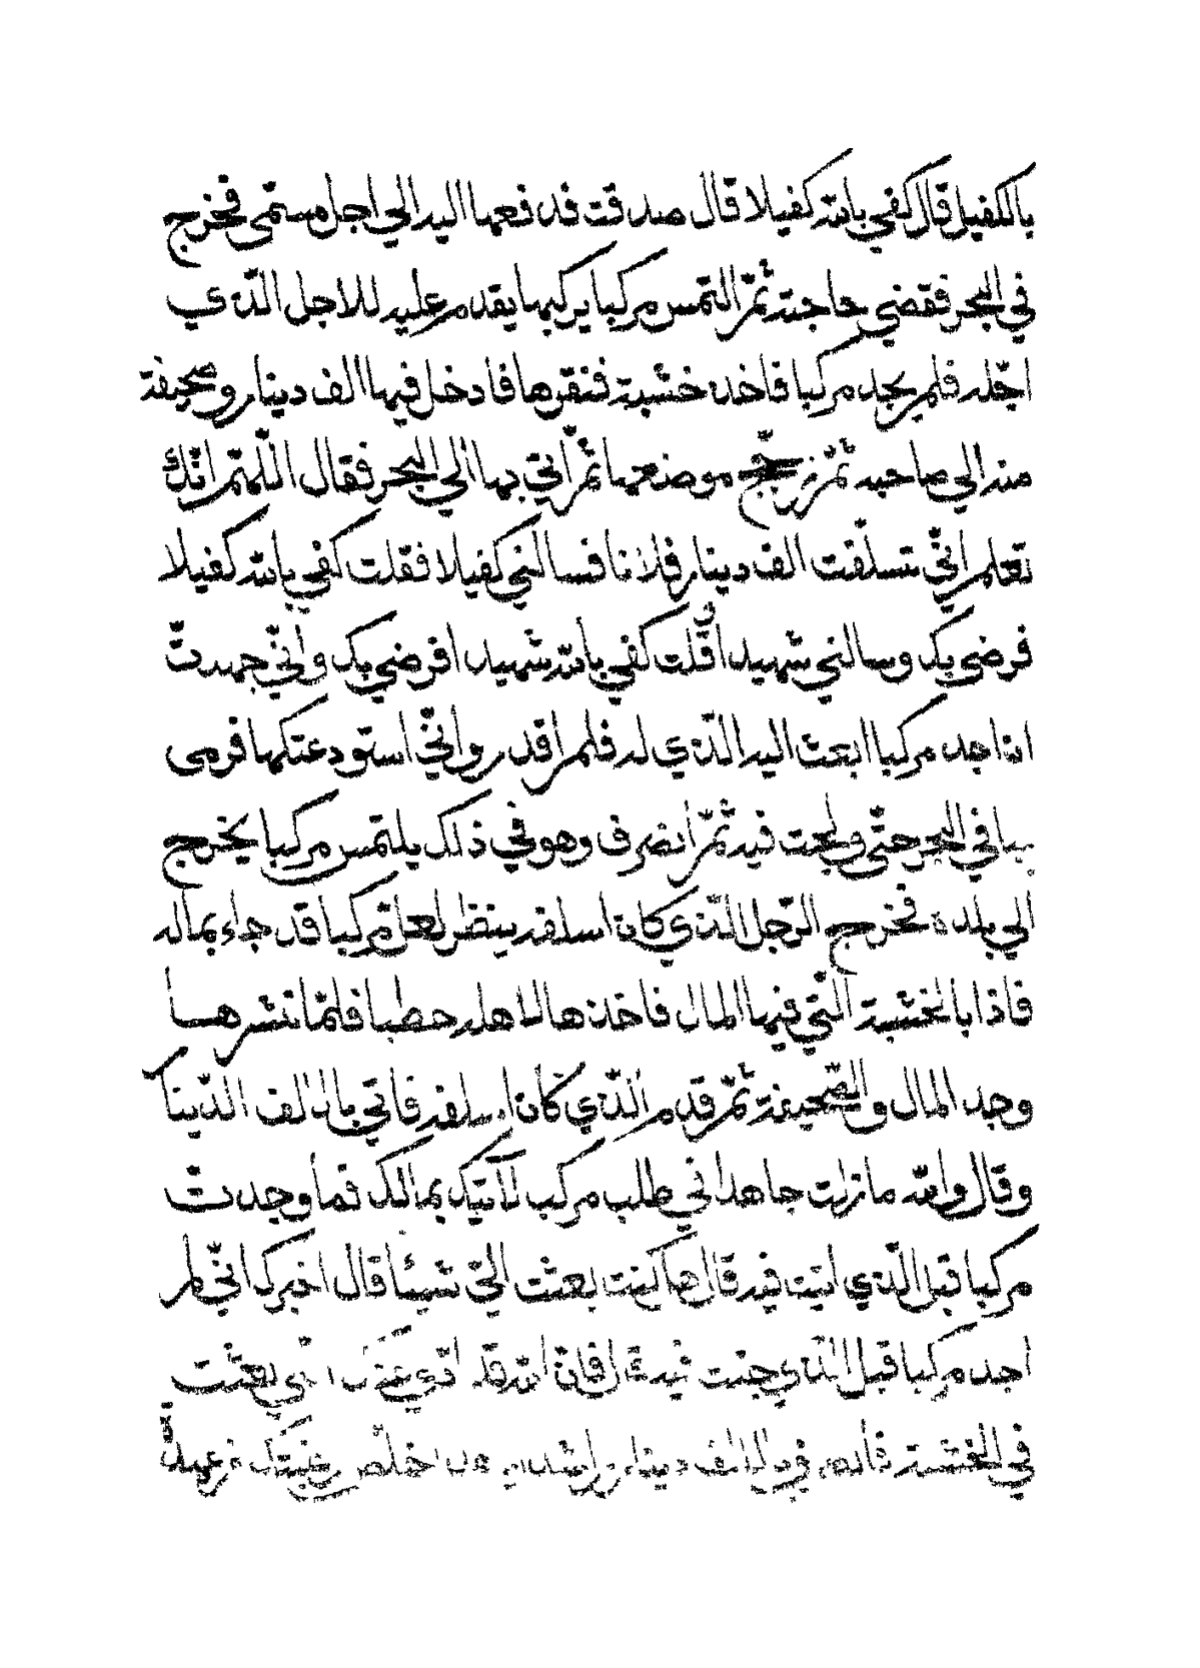 بالكفيل قال كفي بالله كفيلا قال صدقت فدفعها اليه الي اجل مسمّى فخرج
في البحر فقضي حاجته ثمّ التمس مركبا يركبها يقدم عليه للاجل الّذي
اجّله فلم يجد مركبا فاخذ خشبة فنقرها فادخل فيها الف دينار وصحيفة
منه الي صاحبه ثمّ زجّج موضعها ثمّ أتي بها الي البحر فقال اللّهمّ انّك
تعلم انّي تسلّفت الف دينار فلانا فسالني كفيلا فقلت كفي بالله كفيلا
فرضي بك وسالني شهيدا فقلت كفي بالله شهيدا فرضي بك وانّي جهدتّ
ان اجد مركبا ابعث اليه الّذي له فلم اقدر وانّي استودعتكها فرمى
بها في البحر حتّى ولجت فيه ثمّ انصرف وهو في ذلك يلتمس مركبا يخرج
الي بلده فخرج الرّجل الّذي كان اسلفه ينظر لعلّ مركبا قد جاء بماله
فاذا بالخشبة الّتي فيها المال فاخذها لاهله حطبا فلمّا نشرهـــا
وجد المال والصّحيفة ثمّ قدم الّذي كان اسلفه فاتي بالالف الدّينا
وقال والله مازلت جاهدا في طلب مركب لآتيك بمالك فما وجدتّ
مركبا قبل الّذي اتيت فيه قال هل كنت بعثت اليّ شيئا قال اخبرك انّي لم
اجد مركبا قبل الّذي جئت فيه قال فانّ الله قد ادّي عنك الّذي بعثت
في الخشبة فانصرف بالالف دينار راشدا